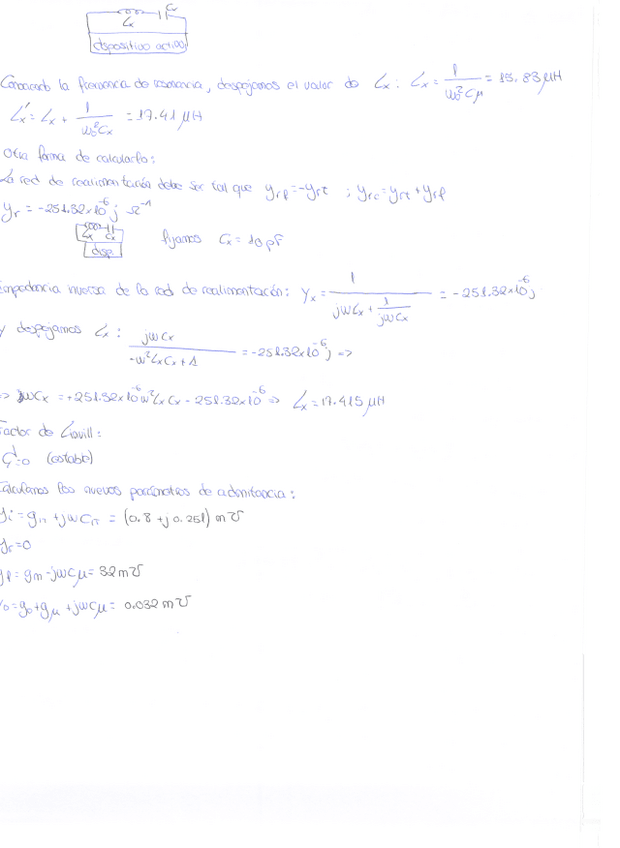 Cx
Lx
dispositivo activo
Conociendo la frecuencia de resonancia, despejamos el valor de Lx: Lx = 1/(ω₀²Cμ) = 15.83 μH
Lx' = Lx + 1/(ω₀²Cx) = 17.41 μH
Otra forma de calcularlo:
La red de realimentación debe ser tal que yrf = -yrt ; yrc = yrt + yrf
yr = -251.32x10⁻⁶j Ω⁻¹
Lx Cx
disp.
fijamos Cx = 10 pF
impedancia inversa de la red de realimentación: Yx = 1/(jωLx + 1/(jωCx)) = -251.32x10⁻⁶j
y despejamos Lx: jωCx/(-ω²LxCx+1) = -251.32x10⁻⁶j =>
=> jωCx = +251.32x10⁻⁶ω²LxCx - 251.32x10⁻⁶ => Lx = 17.415 μH
Factor de Linvill:
C = 0 (estable)
Calculamos los nuevos parámetros de admitancia:
yi = gπ + jωCπ = (0.8 + j0.251) m℧
yr = 0
yf = gm - jωCμ = 32 m℧
yo = go + gμ + jωCμ = 0.032 m℧